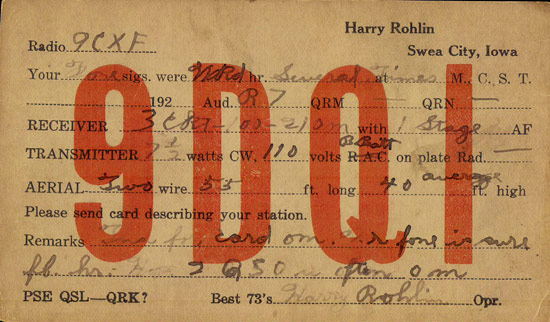 Harry Rohlin
Swea City, Iowa
Radio 9CXF
9DQI
Your Fone sigs. were WKd hr. Several at Times M., C. S. T.
192 Aud. R 7 QRM — QRN —
RECEIVER 3 Ckt-100-210m with 1 Stage AF
TRANSMITTER 7 1/2 watts CW, 110 volts B.Batt R.A.C. on plate Rad. —
AERIAL Two wire 55 ft. long 40 average ft. high
Please send card describing your station.
Remarks card om. ur fone is sure
fb. hr. QSO u often om
PSE QSL—QRK? Best 73's Harry Rohlin Opr.